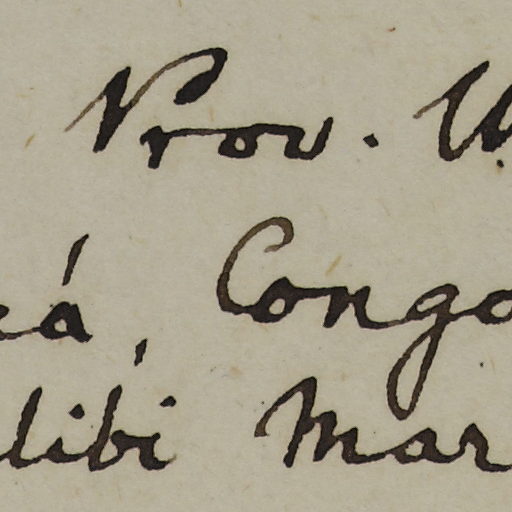 Prov. U
eá, Congo
libi Mar